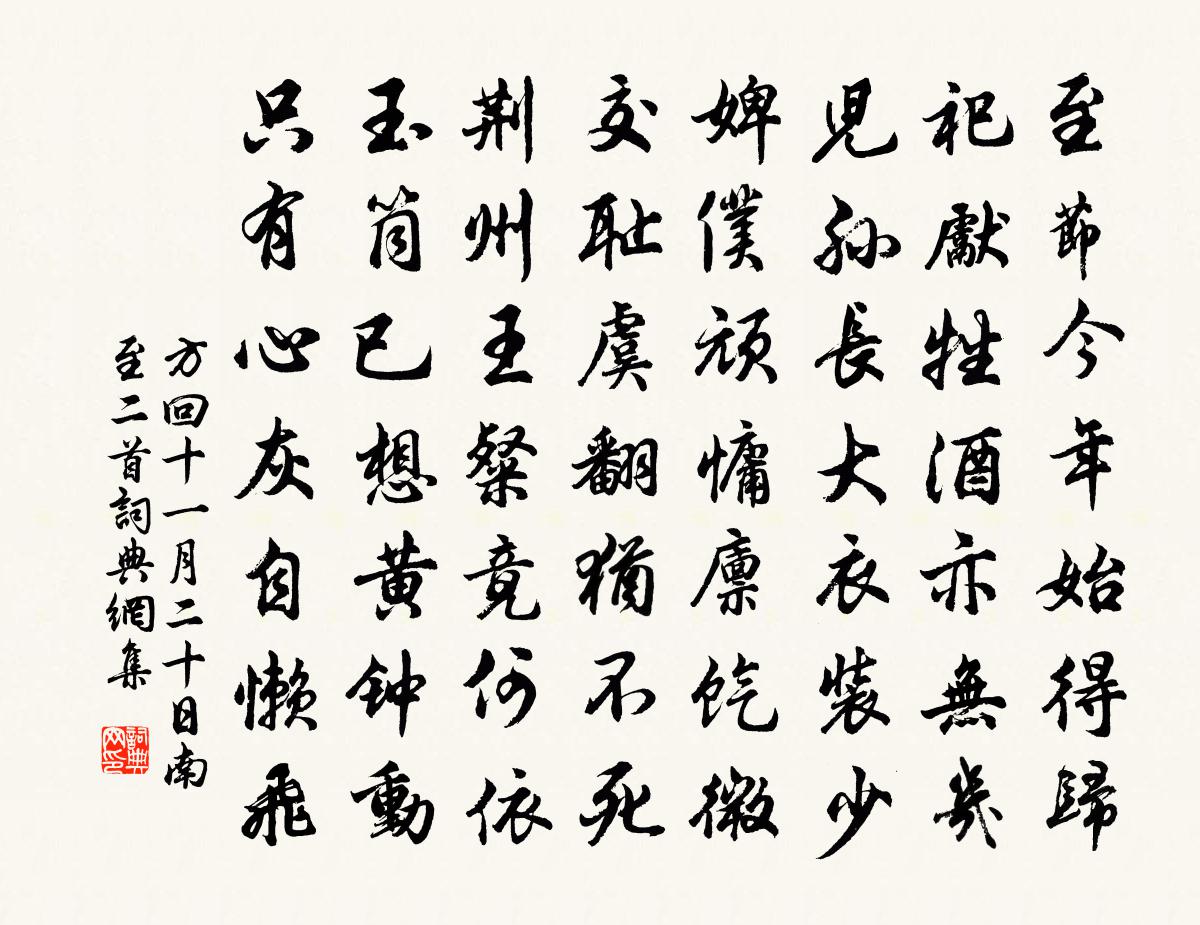 至節今年始得歸
祀獻牲酒亦無幾
児孫長大衣裝少
婢僕頑慵廪饩微
交耻虞翻猶不死
荆州王粲竟何依
玉筒已想黄钟動
只有心灰自懶飛
方回十一月二十日南
至二首詞典網集
詞典网印